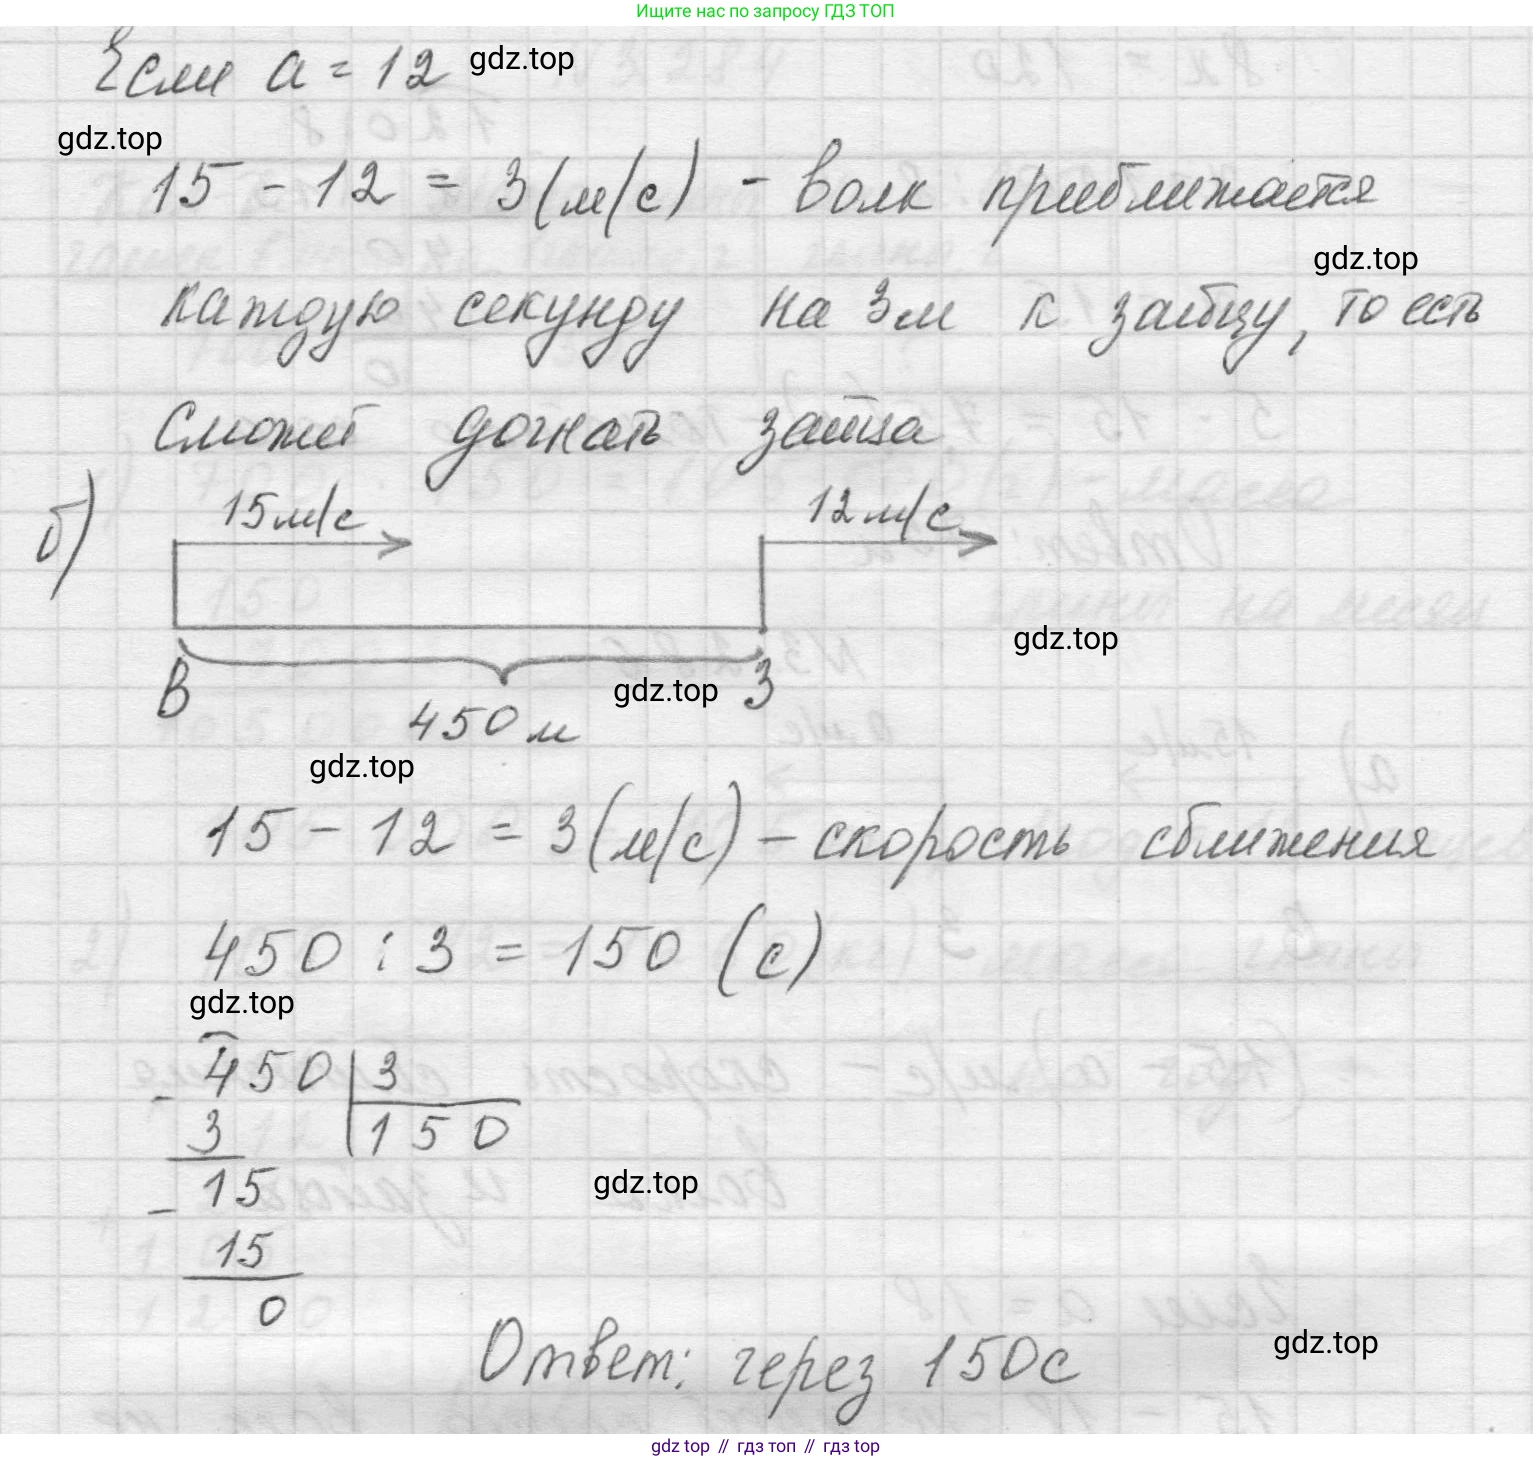 Ищите нас по запросу ГДЗ ТОП
Если a = 12 gdz.top
gdz.top
15 - 12 = 3 (м/с) - волк приближается
gdz.top
каждую секунду на 3м к зайцу, то есть
сможет догнать зайца
б) 15м/с 12м/с
gdz.top
В gdz.top З
450 м
gdz.top
15 - 12 = 3 (м/с) - скорость сближения
450 : 3 = 150 (с)
gdz.top
- 450 | 3
3 | 150
- 15
gdz.top
15
0
Ответ: через 150с
gdz.top
gdz top // гдз топ // gdz top